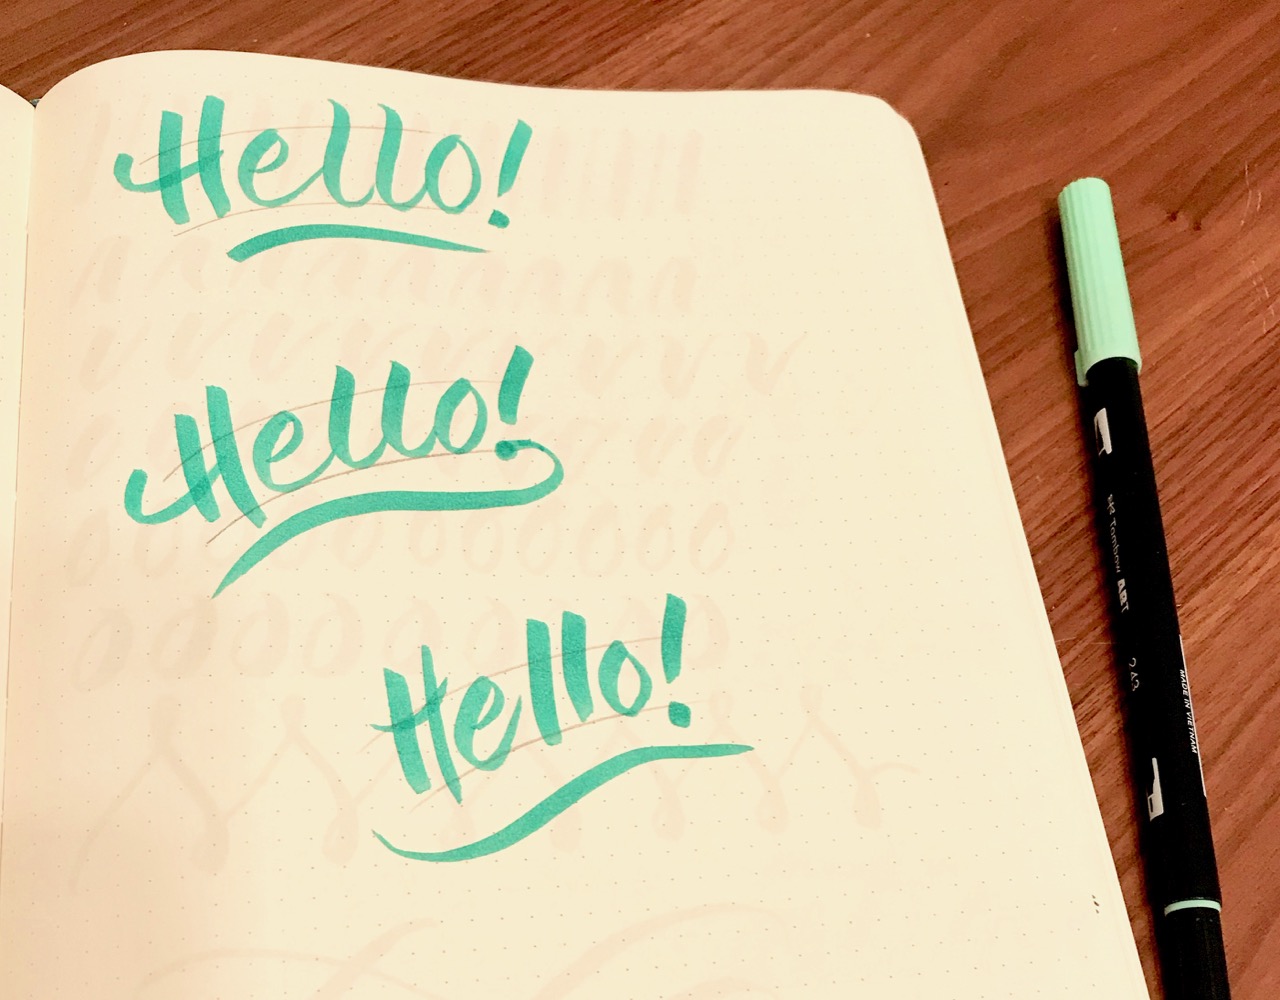 Hello!
Hello!
Hello!
Tombow ABT
243
MADE IN VIETNAM